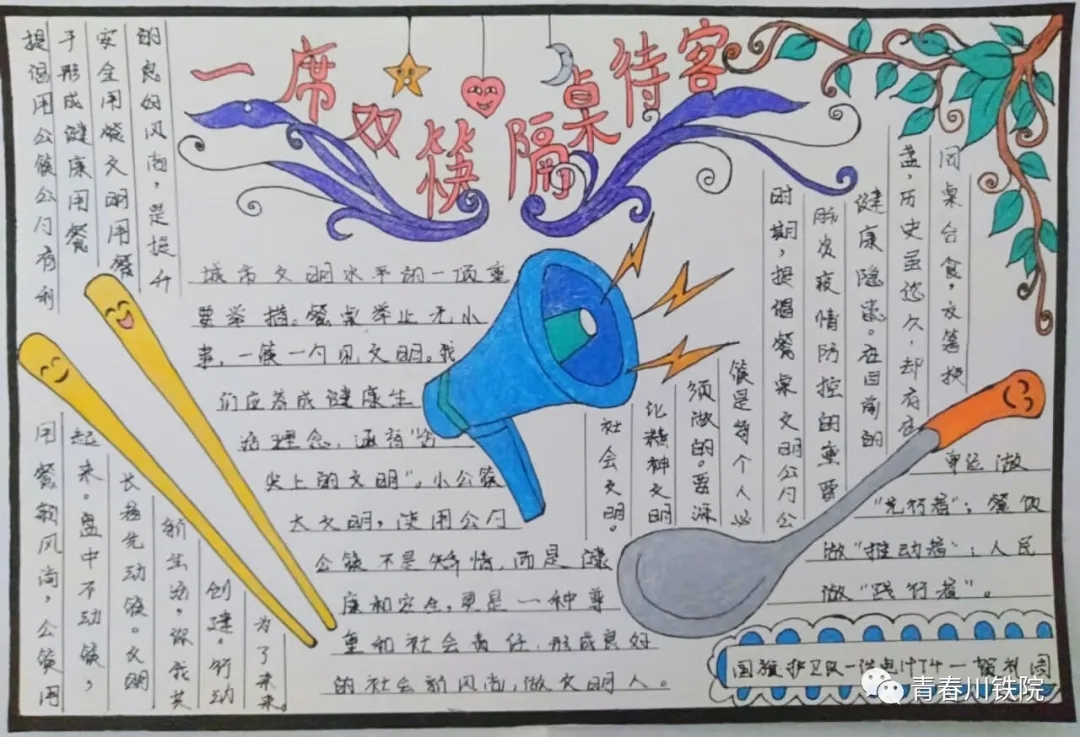 一席双筷 隔桌待客
提倡用公筷公勺有利
于形成健康用餐
安全用餐文明用餐
的良好风尚,是提升
城市文明水平的一项重
要举措。餐桌举止无小
事,一筷一勺见文明。我
们应养成健康生
活理念,涵育"舌
尖上的文明"。小公筷
大文明,使用公勺
公筷不是矫情,而是健
康和安全,更是一种尊
重和社会责任,形成良好
的社会新风尚,做文明人。
用餐新风尚,公筷用
起来。盘中不动筷,
长幼先动筷。文明
新生活,你我共
创建。行动
为了未来。
同桌合食,交箸换
盏,历史虽悠久,却有
健康隐患。在目前的
肺炎疫情防控的重要
时期,提倡餐桌文明公勺公
筷是每个人必
须做的。要深
化精神文明
社会文明。
单位做
"先行者";餐饮
做"推动者";人民
做"践行者"。
国旗护卫队-供电
青春川铁院